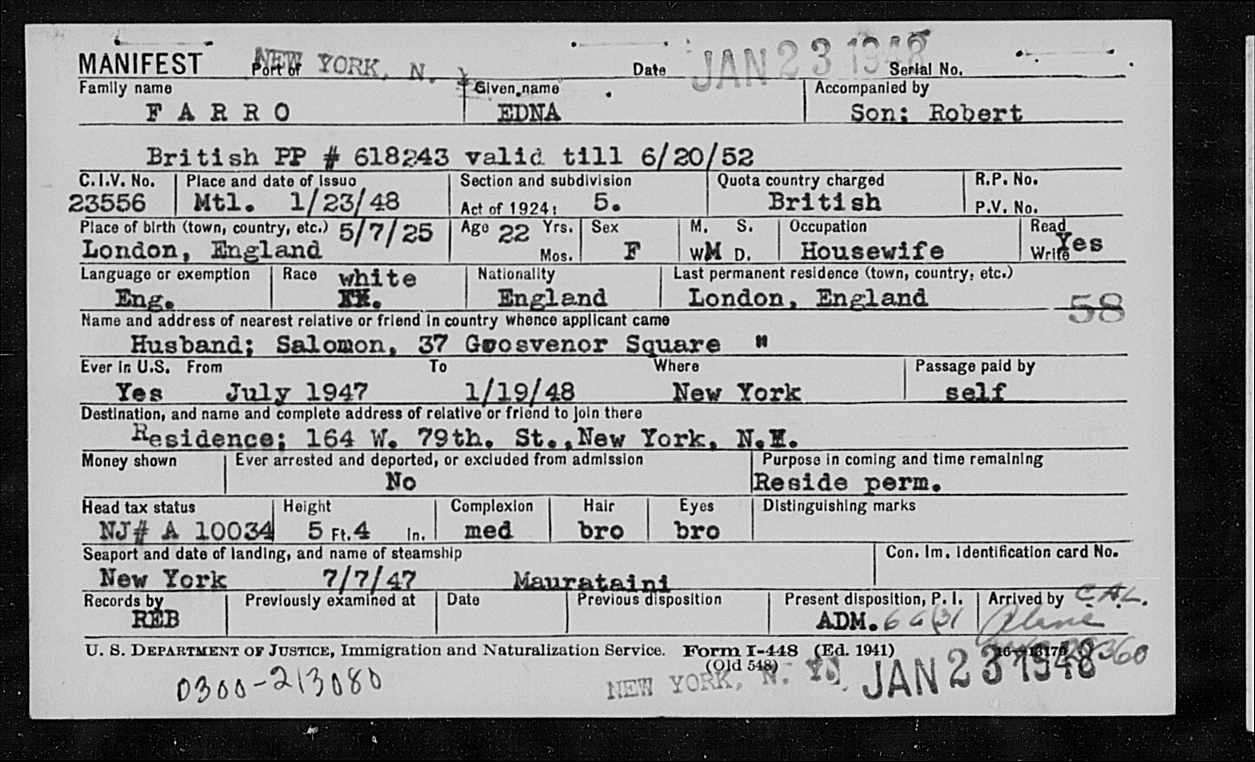 MANIFEST Port of NEW YORK, N. Y. Date JAN 23 1948 Serial No.
Family name Given name Accompanied by
F A R R O EDNA Son: Robert
British PP # 618243 valid till 6/20/52
C.I.V. No. Place and date of issue Section and subdivision Quota country charged R.P. No.
23556 Mtl. 1/23/48 Act of 1924: 5. British P.V. No.
Place of birth (town, country, etc.) 5/7/25 Age 22 Yrs. Sex M. S. Occupation Read
London, England Mos. F W M D. Housewife Write Yes
Language or exemption Race white Nationality Last permanent residence (town, country, etc.)
Eng. England London, England 58
Name and address of nearest relative or friend in country whence applicant came
Husband; Salomon, 37 Goosvenor Square "
Ever in U.S. From To Where Passage paid by
Yes July 1947 1/19/48 New York self
Destination, and name and complete address of relative or friend to join there
Residence; 164 W. 79th. St.,New York, N.Y.
Money shown Ever arrested and deported, or excluded from admission Purpose in coming and time remaining
No Reside perm.
Head tax status Height Complexion Hair Eyes Distinguishing marks
NJ# A 10034 5 Ft. 4 In. med bro bro
Seaport and date of landing, and name of steamship Con. Im. Identification card No.
New York 7/7/47 Maurataini
Records by Previously examined at Date Previous disposition Present disposition, P. I. Arrived by C.A.L.
REB ADM.
U. S. DEPARTMENT OF JUSTICE, Immigration and Naturalization Service. Form I-448 (Ed. 1941)
(Old 548)
0300-213080 NEW YORK, N. Y. JAN 23 1948